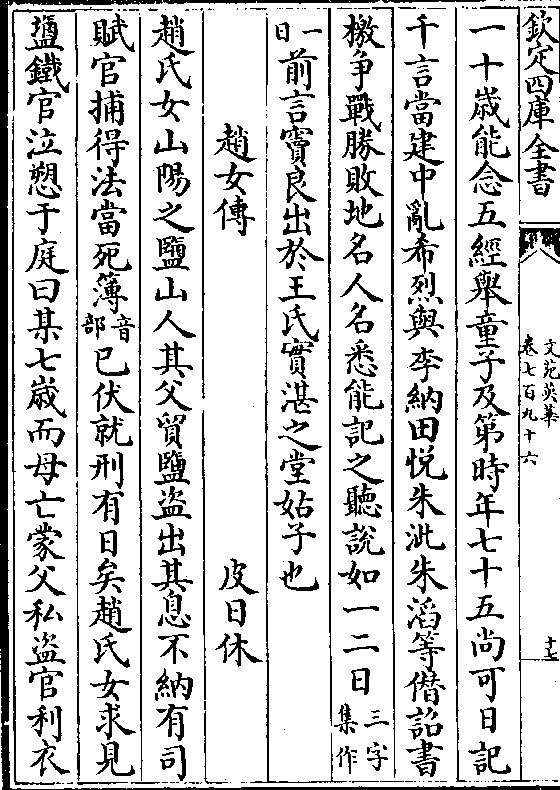 欽定四庫全書
文苑英華
卷七百九十六
十七
一十歳能念五經舉童子及第時年七十五尚可日記
千言當建中亂希烈與李納田悦朱泚朱滔等僭詔書
檄争戰勝敗地名人名悉能記之聽說如一二日三字集作
一日前言竇良出於王氏實湛之堂姑子也
趙女傳 皮日休
趙氏女山陽之鹽山人其父貿鹽盗出其息不納有司
賦官捕得法當死簿音部已伏就刑有日矣趙氏女求見
鹽鐵官泣愬于庭曰某七歳而母亡蒙父私盗官利衣